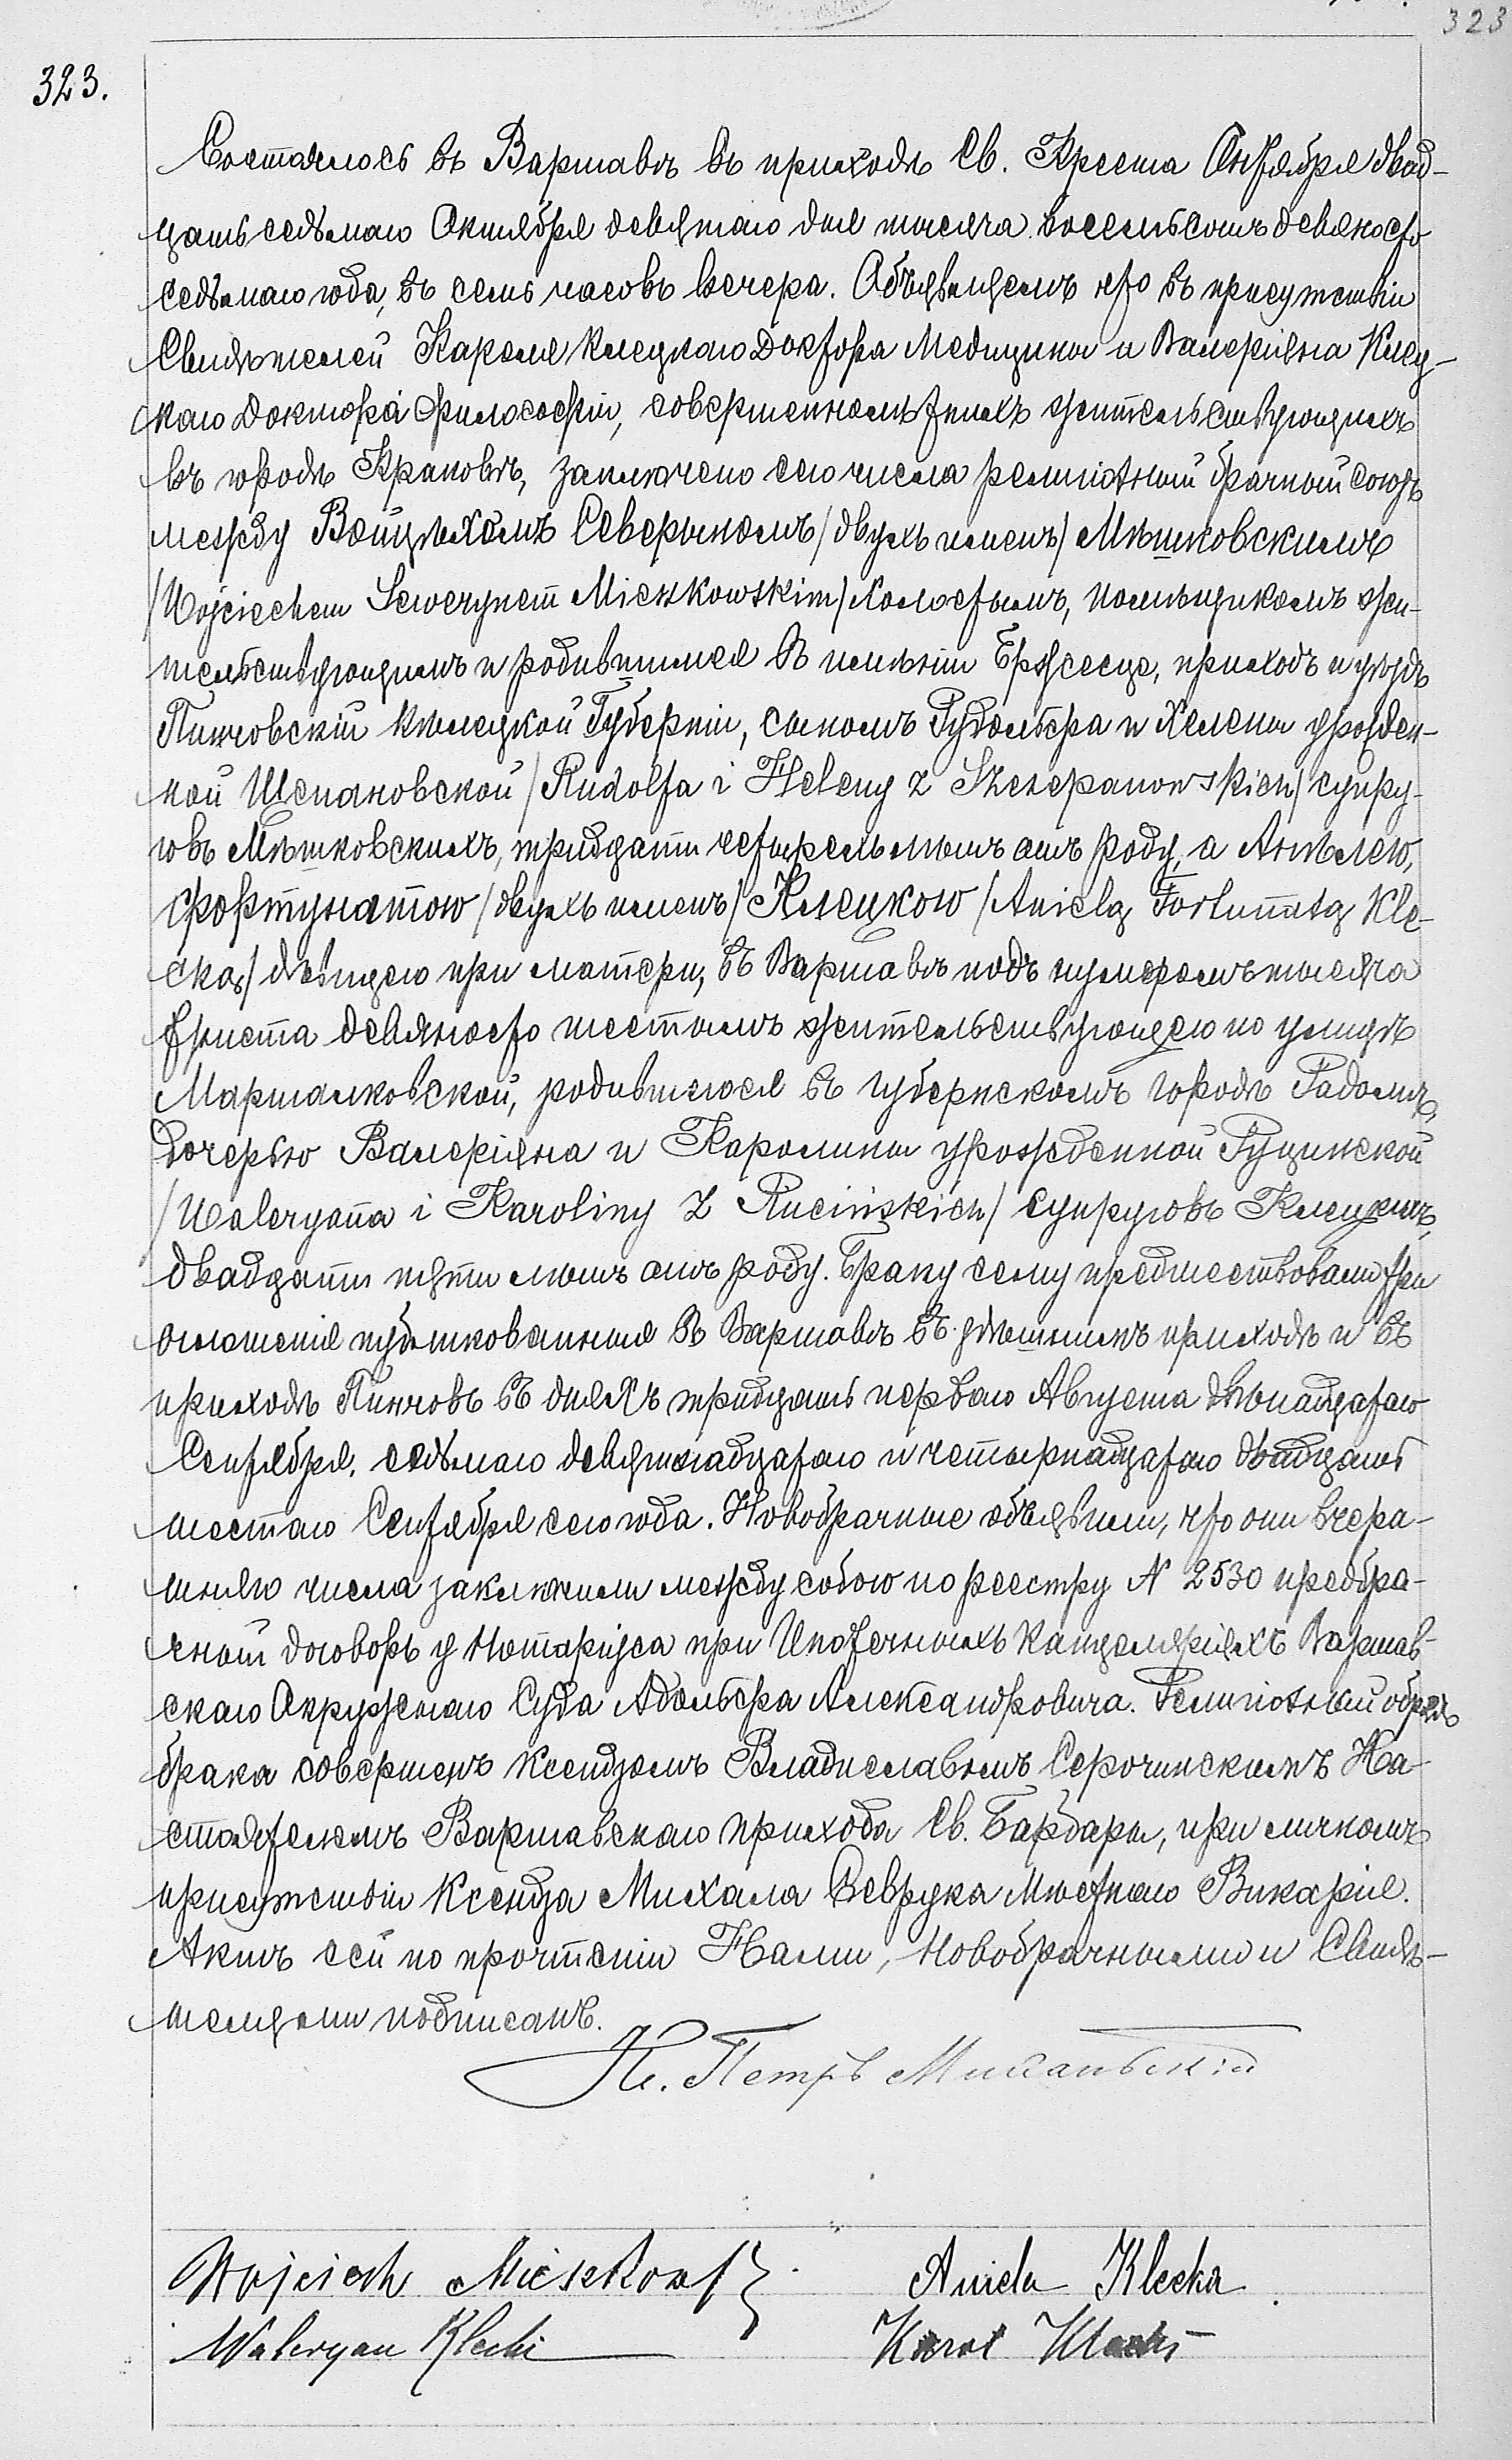 323
323.
Состоялось въ Варшавѣ въ приходѣ Св. Креста Октября двад-
цать седьмаго Октября девятаго дня тысяча восемьсотъ девяносто
седьмаго года, въ семь часовъ вечера. Объявляемъ что въ присутствіи
Свидѣтелей Кароля Клецкаго Доктора Медицины и Валеріяна Клец-
каго Доктора Философіи, совершеннолѣтнихъ жительствующихъ
въ городѣ Краковѣ, заключено сего числа религіозный брачный союзъ
между Войцѣхомъ Северыномъ /двухъ именъ/ Мѣшковскимъ
/Wojciechem Sewerynem Mieszkowskim/ холостымъ, помѣщикомъ жи-
тельствующимъ и родившимся въ имѣніи Бржесце, приходъ и уѣздъ
Пинчовскій Кѣлецкой Губерніи, сыномъ Рудольфа и Хелены урожден-
ной Щепановской /Rudolfa i Heleny z Szczepanowskich/ супру-
говъ Мѣшковскихъ, тридцати четырехъ лѣтъ отъ роду, а Анѣлею,
Фортунатою /двухъ именъ/ Клецкою /Anielą Fortunatą Kle-
cką/ дѣвицею при матери, въ Варшавѣ подъ нумеромъ тысяча
триста девяносто шестымъ жительствующею по улицѣ
Маршалковской, родившеюся въ губернскомъ городѣ Радомѣ,
дочерью Валеріяна и Каролины урожденной Руцинской
/Waleryana i Karoliny z Rucińskich/ супруговъ Клецкихъ,
двадцати пяти лѣтъ отъ роду. Браку сему предшествовали три
оглашенія публикованныя въ Варшавѣ въ здѣшнемъ приходѣ и въ
приходѣ Пинчовъ въ дняхъ тридцать перваго Августа двѣнадцатаго
Сентября, седьмаго девятнадцатаго и четырнадцатаго двадцать
шестаго Сентября сего года. Новобрачные объявили, что они вчера-
шняго числа заключили между собою по реестру N 2530 предбра-
чный договоръ у Нотаріуса при Ипотечныхъ Канцеляріяхъ Варшав-
скаго Окружнаго Суда Адольфа Александровича. Религіозный обрядъ
брака совершенъ Ксендзомъ Владиславомъ Серочинскимъ На-
стоятелемъ Варшавскаго прихода Св. Барбары, при личномъ
присутствіи Ксендза Михала Деврука Мѣстнаго Викарія.
Актъ сей по прочтеніи Нами, Новобрачными и Свидѣ-
телями подписанъ.
Кс. Петръ
Wojciech Mieszkowski Aniela Klecka
Waleryan Klecki Karol Klecki